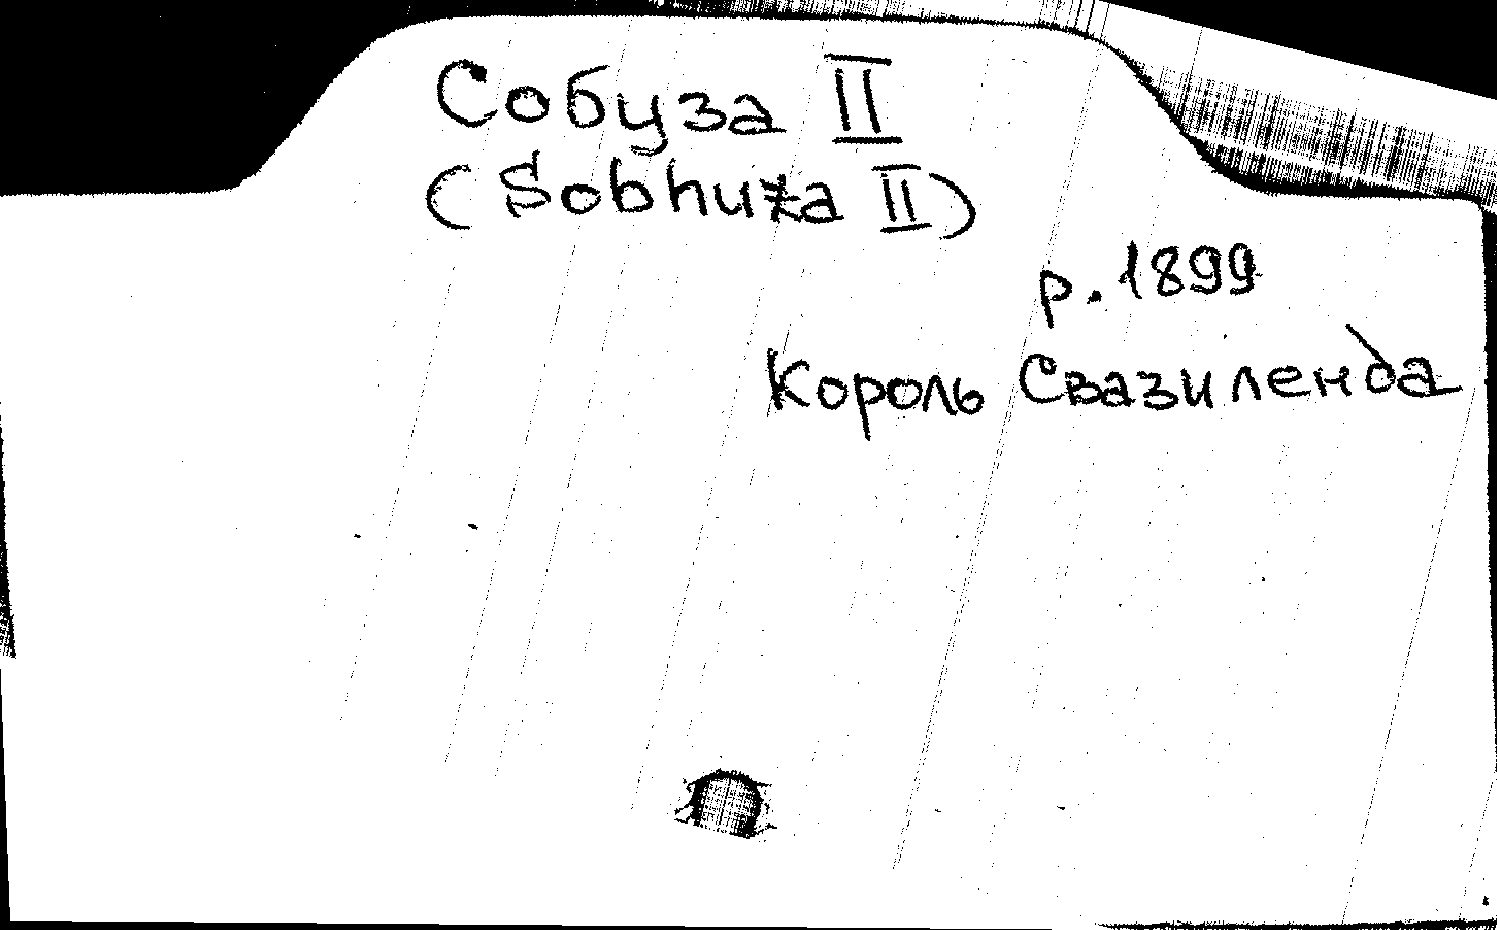 Собуза II
(Sobhuza II)
р. 1899
Король Свазиленда